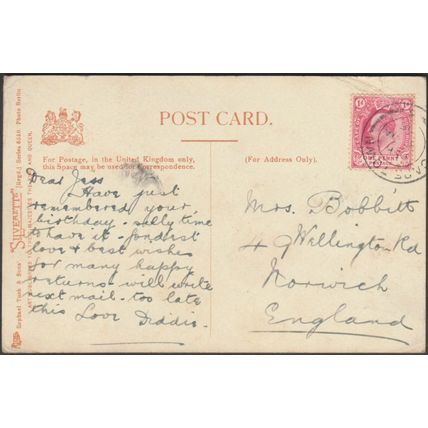 POST CARD.
For Postage, in the United Kingdom only,
this Space may be used for Correspondence.
(For Address Only.)
Dear Jess
Have just
remembered your
birthday. silly time
to have it. fondest
love & best wishes
for many happy
returns. will write
next mail. too late
this Love
Mrs. Bobbitt
4 Wellington Rd
Norwich
England
Raphael Tuck & Sons "SILVERETTE" [Regd.] Series 6540 Photo Berlin
ART PUBLISHERS TO THEIR MAJESTIES THE KING AND QUEEN.
ONE PENNY